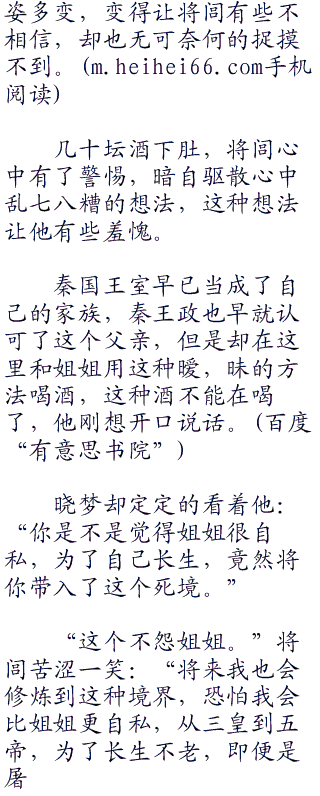 姿多变，变得让将闾有些不
相信，却也无可奈何的捉摸
不到。(m.heihei66.com手机
阅读)
几十坛酒下肚，将闾心
中有了警惕，暗自驱散心中
乱七八糟的想法，这种想法
让他有些羞愧。
秦国王室早已当成了自
己的家族，秦王政也早就认
可了这个父亲，但是却在这
里和姐姐用这种暧，昧的方
法喝酒，这种酒不能在喝
了，他刚想开口说话。(百度
“有意思书院”)
晓梦却定定的看着他：
“你是不是觉得姐姐很自
私，为了自己长生，竟然将
你带入了这个死境。”
“这个不怨姐姐。”将
闾苦涩一笑：“将来我也会
修炼到这种境界，恐怕我会
比姐姐更自私，从三皇到五
帝，为了长生不老，即便是
屠